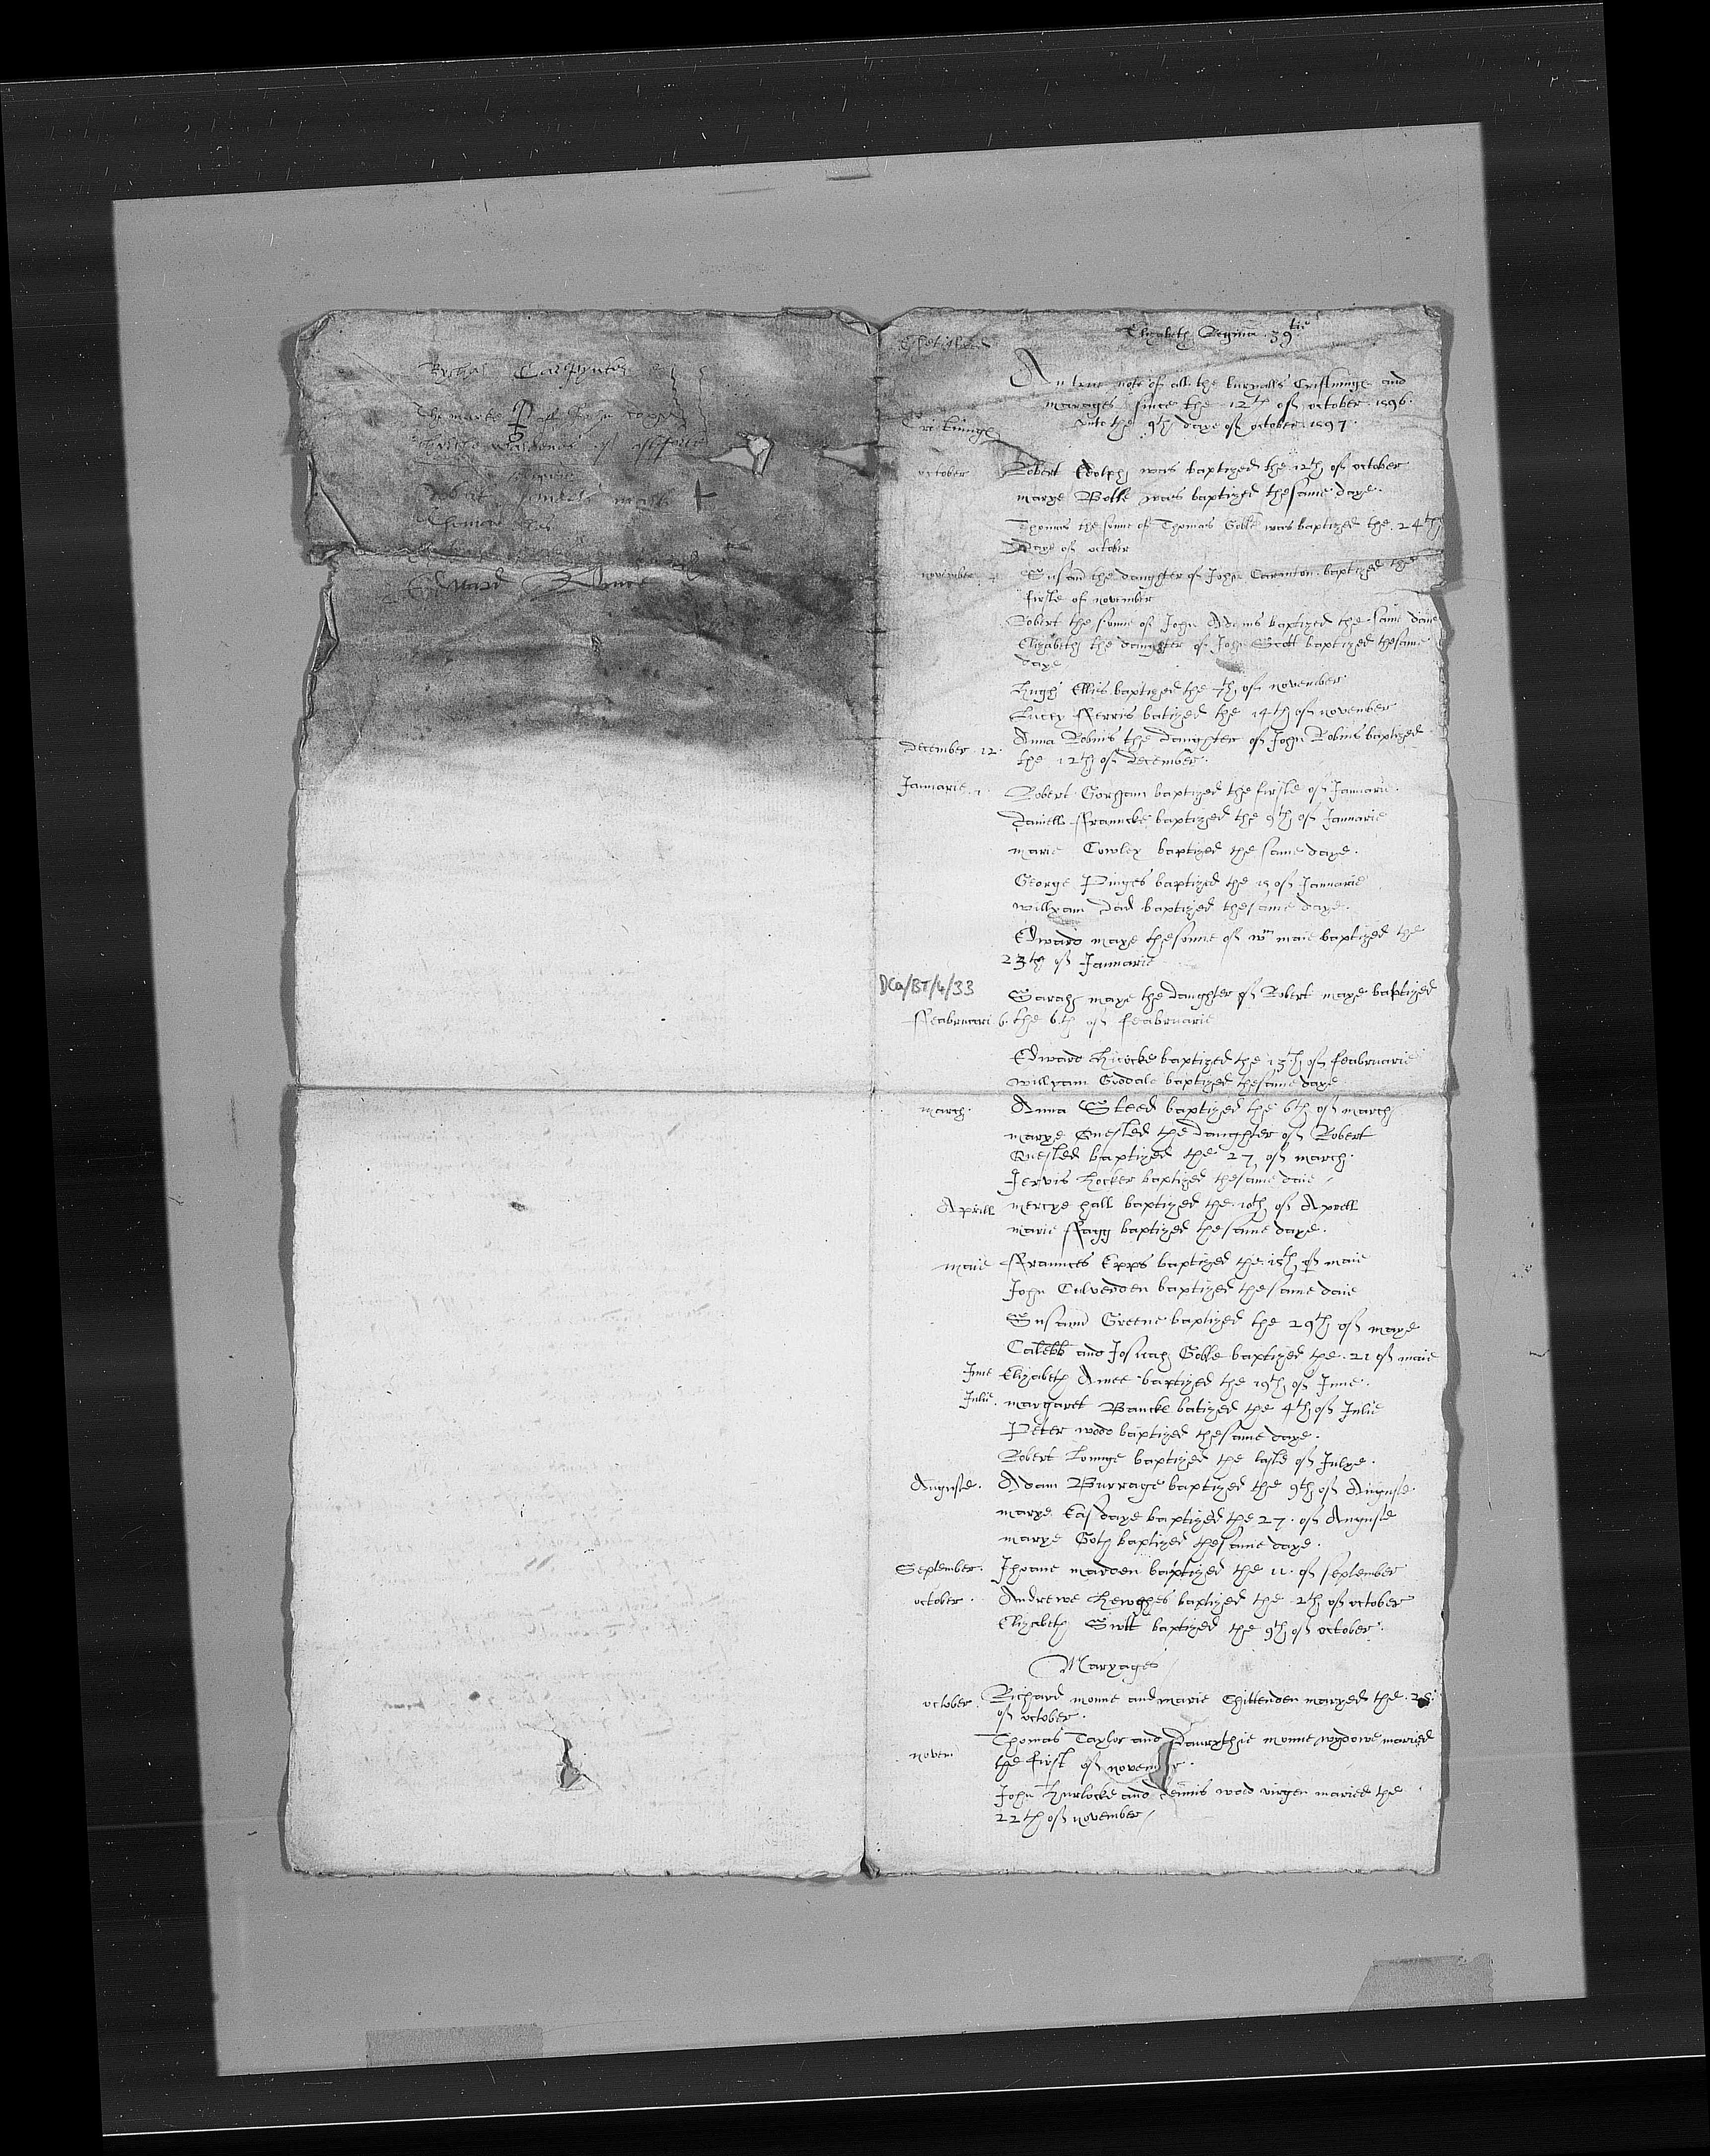 Rychard Carpynter
The marke of John
churche wardens of
Robert marke +
Thomas
Edward
Elizabeth Regina 39tie
An true note of all the buryalls Cristninge and
marages since the 12th of october 1596.
vnto the 9th daye of october 1597.
Cristninge
october Robert Edolph was baptized the 12th of october
marye Bolle was baptized thesame daye.
Thomas the sonne of Thomas Goble was baptized the 24th
Daye of october
november Susann the daughter of John Caranton baptized the
firste of november
Robert the sonne of John Adems baptized the same daie
Elizabeth the daughter of John Scott baptized thesame
daye
Hugh Ellis baptized the 7th of november
Lucey Fferris batized the 14th of november
december 12. Anna Robins the daughter of John Robins baptized
the 12th of december.
Januarie. 1. Robert Gorham baptized the firste of Januarie.
Daniell Ffrauncke baptized the 9th of Januarie
marie Cowley baptized the same daye.
George Pinges baptized the 15 of Januarie
Willyam Dad baptized thesame daye.
Edward maye thesonne of Wm maie baptized the
23th of Januarie
DCa/BT/4/33
Sarah maye the daughter of Robert maye baptized
Ffeabruari 6. the 6th of feabruarie
Edward Hicocke baptized the 13th of feabruarie
Willyam Goddale baptized thesame daye
march. Anna Steed baptized the 6th of march
marye Quested the daughter of Robert
Quested baptized the 27 of march.
Jervis Hocker baptized thesame daie
Aprill mercye hall baptized the 10th of Aprell
marie Ffagg baptized thesame daye.
maie Ffraunces Epps baptized the 15th of maie
John Culverden baptized thesame daie
Susann Greene baptized the 29th of maye
Calebb and Josuah Goble baptized the 21 of maie
June Elizabeth Amee baptized the 19th of June.
Julie. margaret Bancke batized the 4th of Julie
Peter wood baptized thesame daye.
Robert Lounge baptized the laste of Julye.
Auguste. Adam Burrage baptized the 9th of Auguste.
marye Easdaye baptized the 27. of Auguste
marye Goth baptized thesame daye.
September. Jhoane marden baptized the 11. of september
october. Andrewe Hewghes baptized the 2th of october
Elizabeth Swtt baptized the 9th of october.
Maryages
october. Richard monne and marie Chittenden maryed the 25
of october.
Thomas Taylor and Daurythie monne wydowe maried
nover. the first of november.
John Hurlocke and dennis wood virgen maried the
22th of november